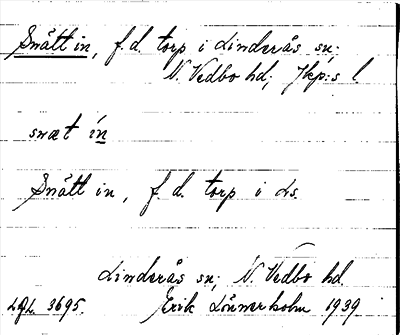 Snått in, f.d. torp i Linderås sn;
N. Vedbo hd; Jkp:s l
snæt in
Snått in, f.d. torp i Ls.
Linderås sn; N. Vedbo hd.
LGL 3695. Erik Lönnerholm 1939